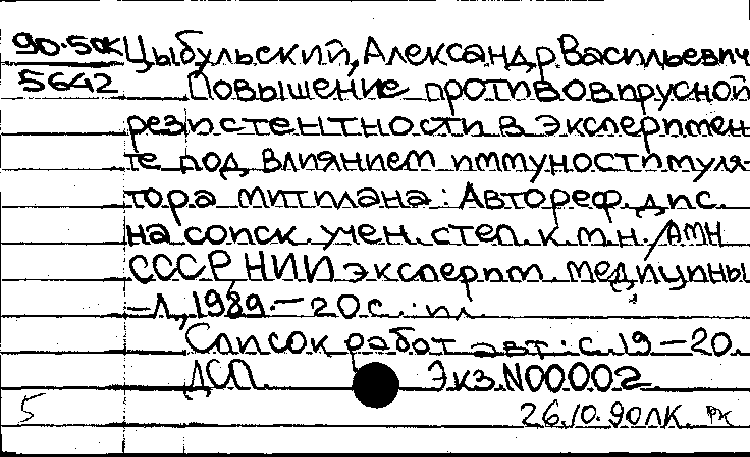 90-5ак Цыбульский, Александр Васильевич
5642
Повышение противовирусной
резистентности в эксперимен-
те под влиянием иммуностимуля-
тора митилана: Автореф. дис.
на соиск. учен. степ. к.м.н. / АМН
СССР, НИИ эксперим. медицины
-Л., 1989.-20с.:ил.
Список работ авт.: с.19-20.
ДСП. Экз.N00002
5 26.10.90ЛК. РЖ